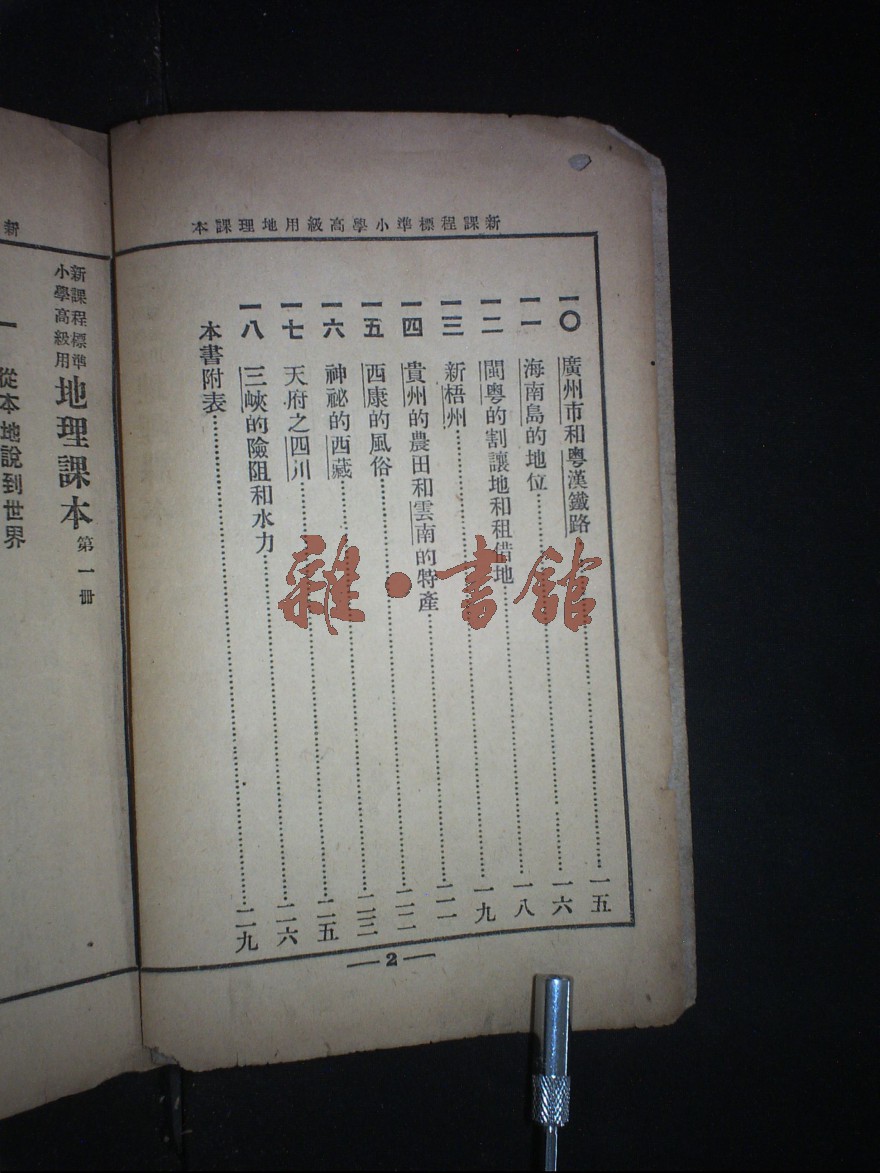 新課程標準小學高級用地理課本
一〇 廣州市和粵漢鐵路……一五
一一 海南島的地位……一六
一二 閩粵的割讓地和租借地……一八
一三 新梧州……一九
一四 貴州的農田和雲南的特產……二一
一五 西康的風俗……二二
一六 神祕的西藏……二三
一七 天府之四川……二五
一八 三峽的險阻和水力……二六
本書附表……二九
—2—
新
新課程標準
小學高級用
地理課本 第一冊
一 從本地說到世界
雜·書館